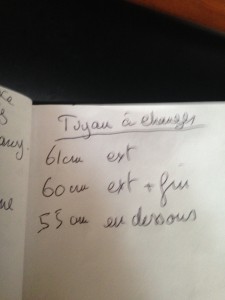 Tuyau à changer
61cm ext
60cm ext + fin
55cm en dessous